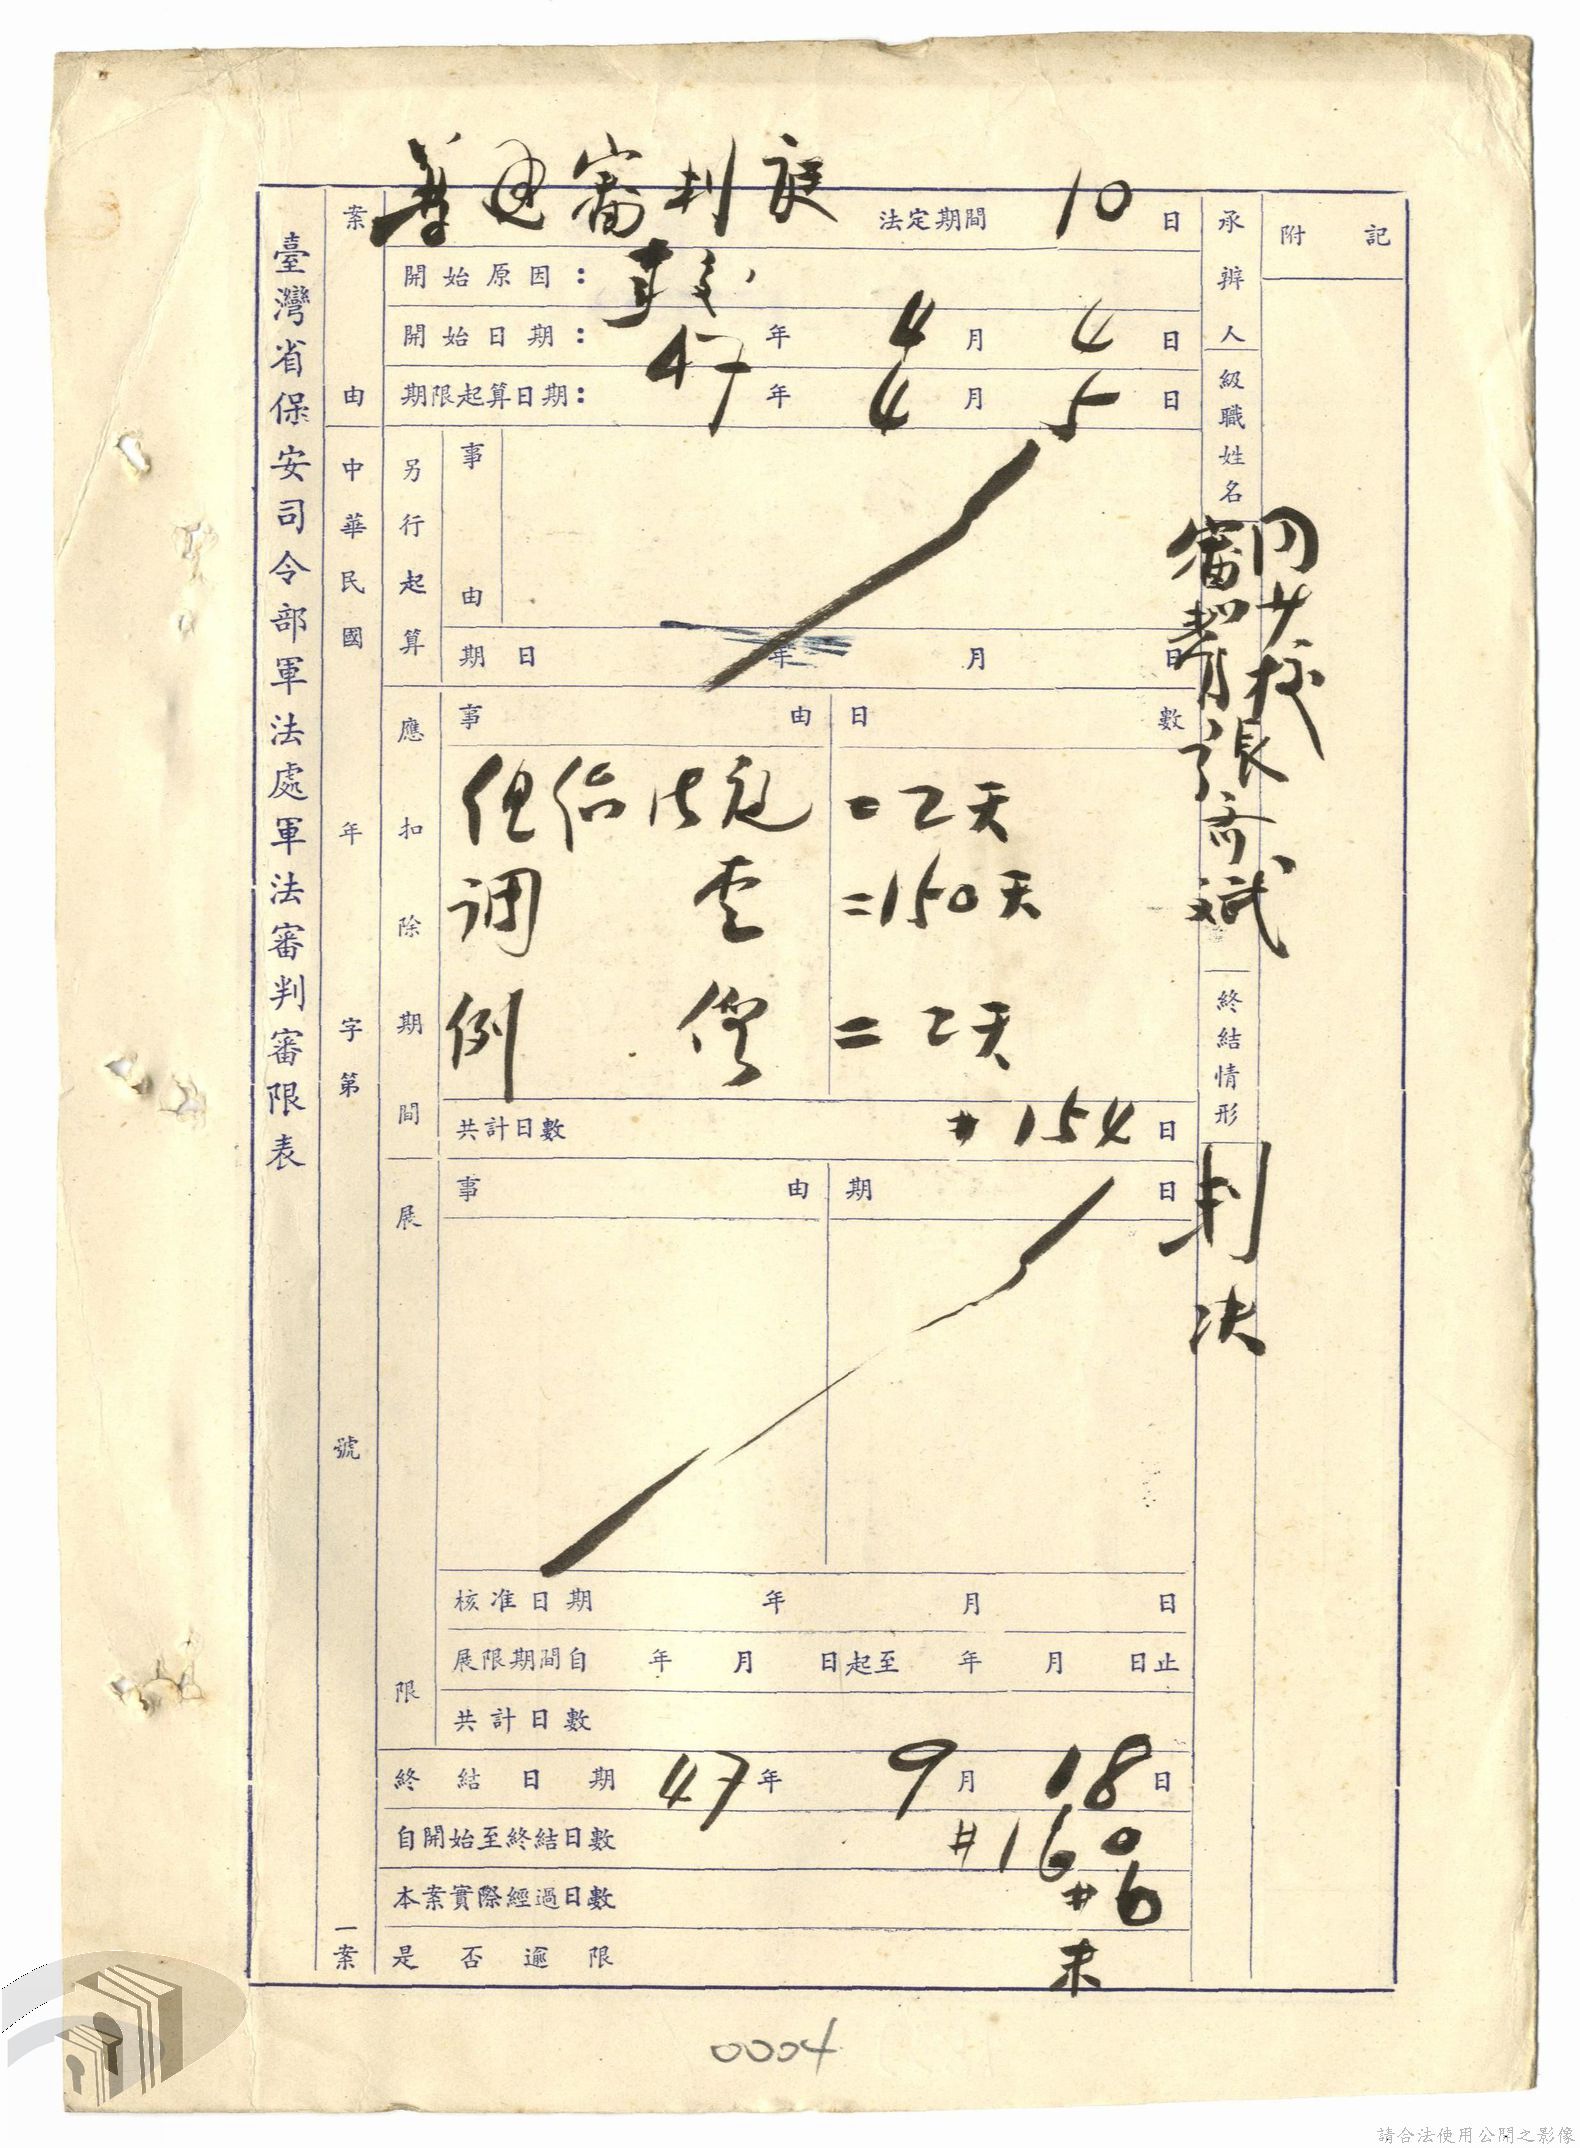 臺灣省保安司令部軍法處軍法審判審限表
案由
中華民國 年 字第 號 一案
普通審判庭 法定期間 10 日
開始原因:
開始日期: 47 年 4 月 4 日
期限起算日期: 年 4 月 5 日
另行起算
事由
期日 年 月 日
應扣除期間
事由 日數
=2天
調查 =150天
例假 =2天
共計日數 #154日
展限
事由 期日
核准日期 年 月 日
展限期間自 年 月 日起至 年 月 日止
共計日數
終結日期 47年 9月 18日
自開始至終結日數 #160
本案實際經過日數 #6
是否逾限 未
承辦人級職姓名
同少校
審 張 斌
終結情形
判決
附記
0004
請合法使用公開之影像